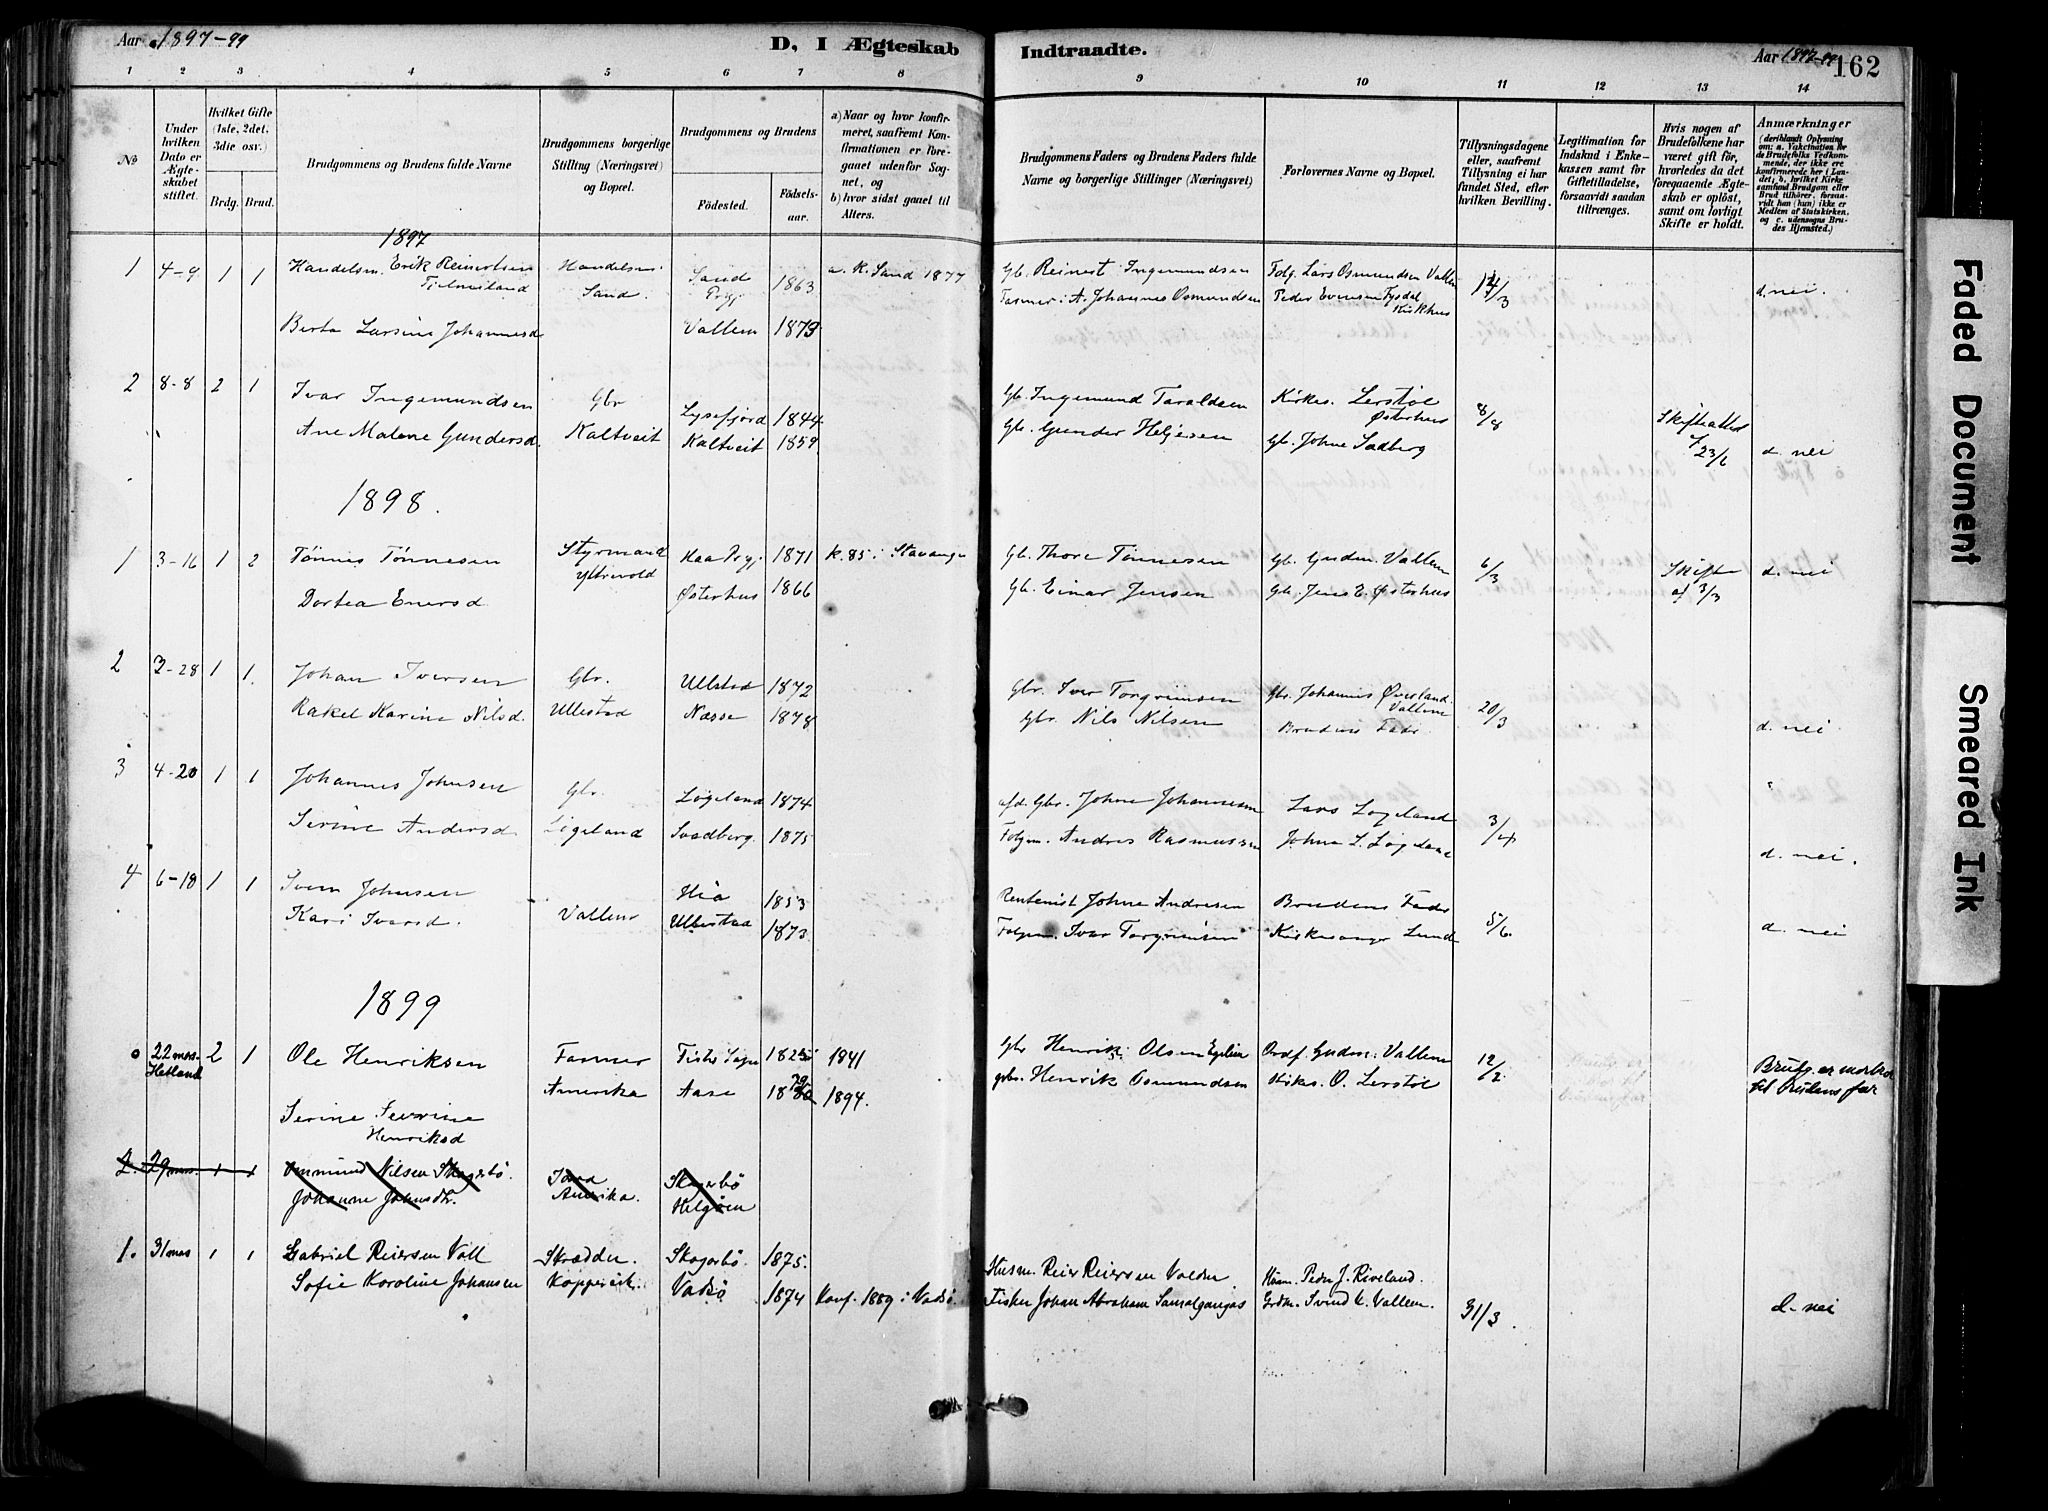 Aar 1897-99
D, I Ægteskab Indtraadte.
Aar 1897-99
162
1 2 3 4 5 6 7 8 9 10 11 12 13 14
No
Under hvilken Dato er Ægteskabet stiftet.
Hvilket Gifte (1ste, 2det, 3die osv.)
Brdg. Brud.
Brudgommens og Brudens fulde Navne
Brudgommens borgerlige Stilling (Næringsvei) og Bopæl.
Brudgommens og Brudens
Fødested. Fødselsaar.
a) Naar og hvor konfirmeret, saafremt Konfirmationen er foregaaet udenfor Sognet, og
b) hvor sidst gaaet til Alters.
Brudgommens Faders og Brudens Faders fulde Navne og borgerlige Stillinger (Næringsvei)
Forlovernes Navne og Bopæl.
Tillysningsdagene eller, saafremt Tillysning ei har fundet Sted, efter hvilken Bevilling.
Legitimation for Indskud i Enkekassen samt for Giftetilladelse, forsaavidt saadan tiltrænges.
Hvis nogen af Brudefolkene har været gift før, hvorledes da det foregaaende Ægteskab er opløst, samt om lovligt Skifte er holdt.
Anmærkninger (deriblandt Oplysning om: a. Vakcination for de Brudefolks Vedkommende, der ikke ere konfirmerede her i Landet; b. hvilket Kirkesamfund Brudgom eller Brud tilhører, forsaavidt han (hun) ikke er Medlem af Statskirken, og c. udensogns Brudes Hjemsted.)
1897
1 4-9 1 1 Handelsm. Erik Reinertsen Handelsm. Sand Prgj 1863 a. K. Sand 1877 Gb. Reinert Ingemundsen Folg. Lars Osmundsen Vallem
Sand. Johannes Osmundsen Peder Evensen Tysdal Kirkhus d. nei.
Berta Larsine Johannesd Vallem 1873
2 8-8 2 1 Ivar Ingemundsen Gbr Lysefjord 1844 Gb. Ingemund Taraldsen Kirkes. Lerstøl Østerhus 8/8 Skifteattest
Ane Malene Gundersd. Kaltveit Kaltveit 1859 Gb. Gunder Heljesen Gb. Johne Sadberg 23/6 d. nei
1898.
1 3-16 1 2 Tönnes Tönnesen Styrmand Haa Prgj 1871 k. 85 i Stavanger Gb. Thore Tönnesen Gb. Gudm. Vallem 6/3 Skifte d. nei
Dortea Enersd Østerhus 1866 Gb. Einar Jensen Gb. Jens E. Østerhus af 3/3
2 3-28 1 1. Johan Iversen Gbr. Ullestad 1872 Gbr. Ivar Torgrimsen Gbr. Johannis Øverland Vallem 20/3
Rakel Karine Nilsd. Ullestad Næsse 1878 Gbr. Nils Nilsen Brudens Fader. d. nei
3 4-20 1 1 Johannes Johnsen Gbr. Løgeland 1874 afd. Gbr. Johne Johannesen Lars Løgeland 3/4
Serine Andersd Løgeland Svadberg 1875 Folgm. Andres Rasmussen Johne L. Løgeland d. nei.
4 6-18 1 1 Sven Johnsen Hiå 1853 Rentenist Johne Andresen Brudens Fader 5/6
Kari Ivarsd. Vallem Ullestad 1873 Folgm. Ivar Torgrimsen Kirkesanger Lund d. nei
1899
0 22 mars. Hetland 2 1 Ole Henriksen Farmer 1841 Gbr Henrik Olsen Egelien Ordf. Gudm. Vallem 12/2 Brudg. er morbror
Amerika Aase 1894. gbr. Henrik Osmundsen Kirkes. O. Lerstøl til brudens far
Serine Severine Henriksd
2. 29 mars. 1 1 Ommund Nilsen Skogerbö. Amerika. Skogerbö
Johanne Johnsdtr. Helgöen
1. 31 mars 1 1 Gabriel Reiersen Vall Skrædder. Skogerbö. 1875. Husm. Reier Reiersen Valden Husm. Peder J. Riveland.
Sofie Karoline Johansen Koppervik. Vadsö 1874 Konf. 1889 i Vadsö. Fisker Johan Abraham Grdm. Svend K. Vallem. 31/3 d. nei
Faded Document
Smeared Ink